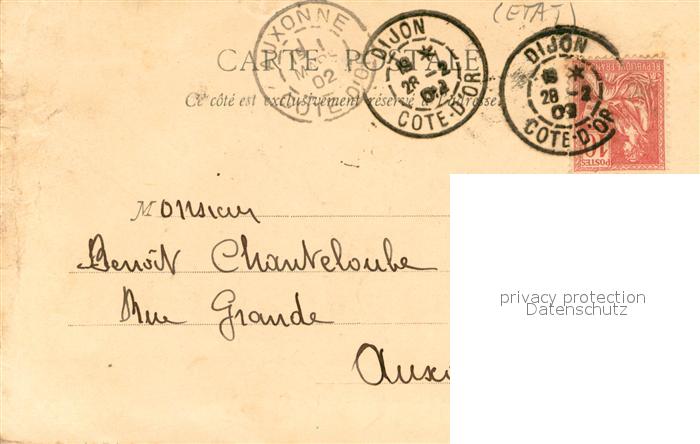 (ETAT)
AUXONNE
1
MARS
02
COTE-D'OR
DIJON
28 -2
02
COTE-D'OR
DIJON
28 -2
02
COTE-D'OR
REPUBLIQUE FRANÇAISE
10
POSTES
CARTE POSTALE
Ce côté est exclusivement réservé à l'adresse
Monsieur
Benoît Chanteloube
Rue Grande
privacy protection
Datenschutz